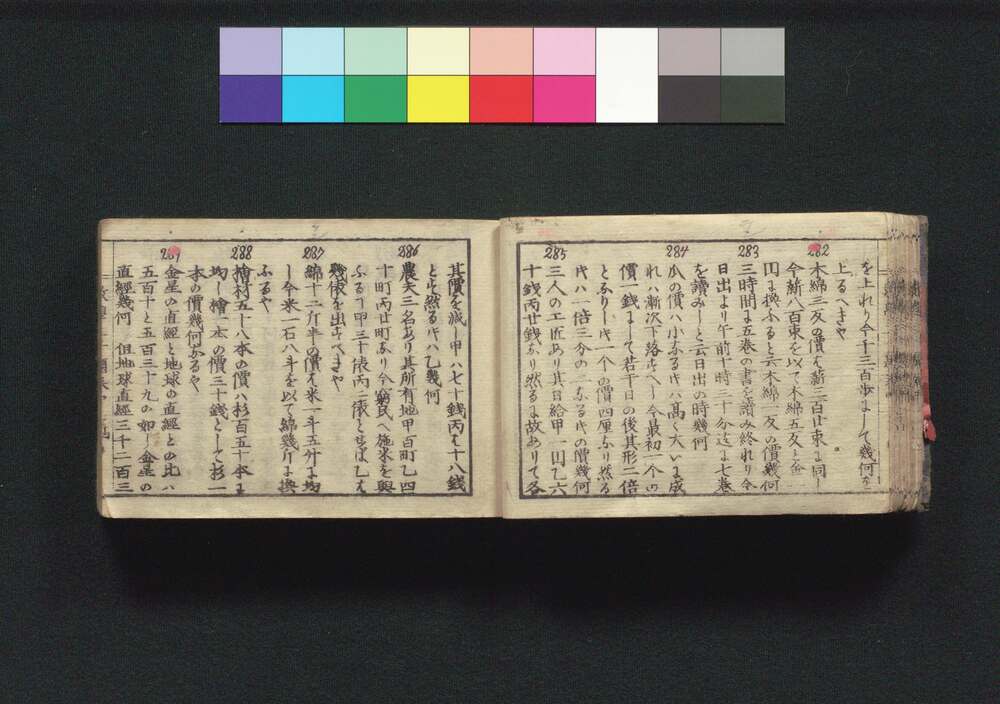 を上れり今千三百歩にして幾何を
上るへきや
282
木綿三反の價を薪三百廿束に同し
今薪八百束を以て木綿五反と金一
円に換ふると云木綿一反の價幾何
283
三時間に五巻の書を讀み終れり今
日出より午前十時三十分迄に七巻
を讀みしと云日出の時幾何
284
瓜の價ハ小なる片ハ高く大いに成
れハ漸次下落すへし今最初一个の
價一銭にして若干日の後其形二倍
となりし片一个の價四厘なり然る
片ハ一倍三分の一なる片の價幾何
285
三人の工匠あり其日給甲一円乙六
十銭丙廿銭なり然るに故ありて各
其價を減し甲ハ七十銭丙を十八銭
とす然る片ハ乙幾何
286
農夫三名あり其所有地甲百町乙四
十町丙廿町なり今窮民へ施米を與
ふるヿ甲三十俵丙二俵とせば乙を
幾俵を出すへきや
287
綿十二斤半の價を米一斗五升に均
し今米一石八斗を以て綿幾斤に換
ふるや
288
檜材五十八本の價ハ杉百五十本に
均し檜一本の價三十銭として杉一
本の價幾何なるや
289
金星の直經と地球の直經との比ハ
五百十と五百三十九の如し金星の
直經幾何 但地球直經三千二百三